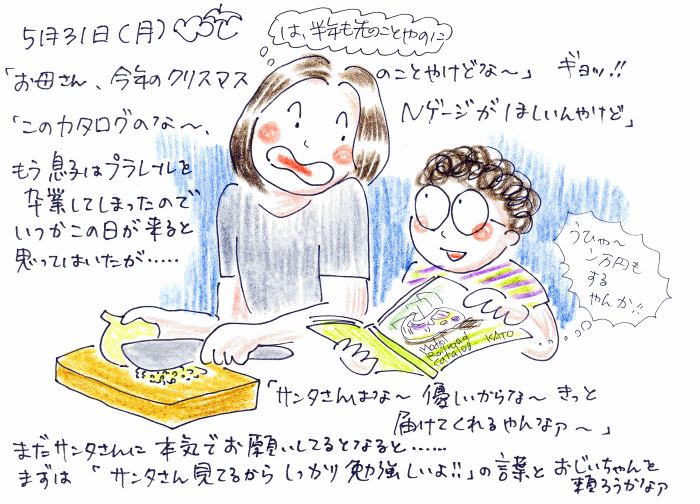 5月31日(月)
は、半年も先のことやのに
「お母さん、今年のクリスマスのことやけどな〜」 ギョッ!!
「このカタログのな〜、Nゲージがほしいんやけど」
もう息子はプラレールを
卒業してしまったので
いつかこの日が来ると
思ってはいたが……
うひゃ〜
ン万円も
する
やんか!!
Model
Railroad
Catalog KATO
「サンタさんはな〜 優しいからな〜 きっと
届けてくれるやんなァ〜」
まだサンタさんに本気でお願いしてるとなると……
まずは「サンタさん見てるからしっかり勉強しいよ!!」の言葉とおじいちゃんを
頼ろうかなァ